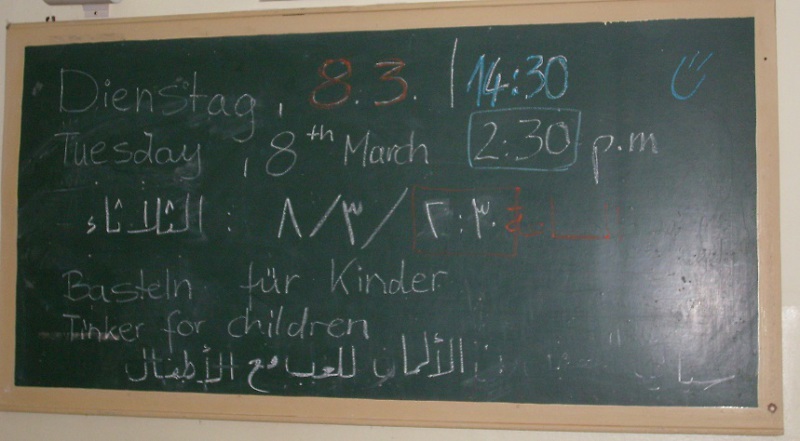 Dienstag, 8.3. | 14:30
Tuesday, 8th March 2:30 p.m
الثلاثاء : ٨/٣/ ٢:٣٠
Basteln für Kinder
Tinker for children
الألمان للعب مع الأطفال